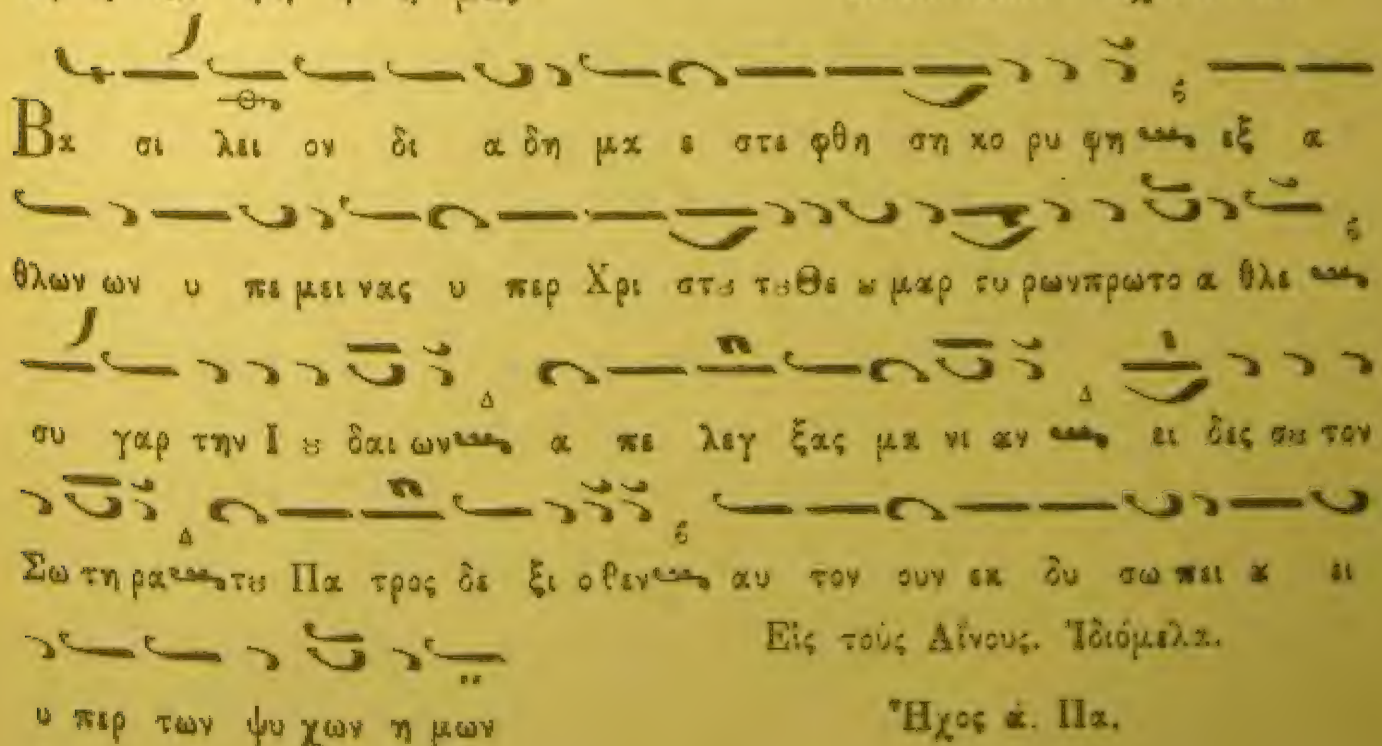 Βα σι λει ον δι α δη μα ε στε φθη ση κο ρυ φη εξ α
θλων ων υ πε μει νας υ περ Χρι στȣ τȣ Θε ȣ μαρ τυ ρων πρωτο α θλε
συ γαρ την Ι ȣ δαι ων α πε λεγ ξας μα νι αν ει δες σȣ τον
Σω τη ρα τȣ Πα τρος δε ξι ο θεν αυ τον ουν εκ δυ σω πει α ει
υ περ των ψυ χων η μων
Εἰς τοὺς Αἴνους. Ἰδιόμελα.
Ἦχος ά. Πα.